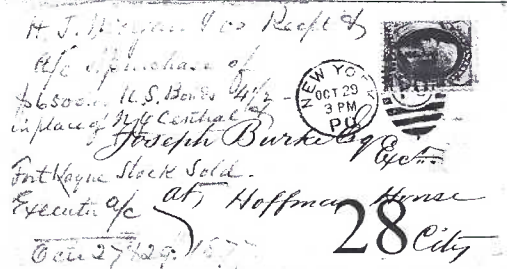 H J Morgan & Co Recpt &
a/c purchase of
$6500.. U.S. Bonds 4½
in place of N Y Central &
Joseph Burke Esq
Exctr
Fort Wayne Stock Sold.
Executor a/c
at, Hoffman House
City
Oct 27 & 29. 1877
NEW YO
OCT 29
3 PM
P.O.
28